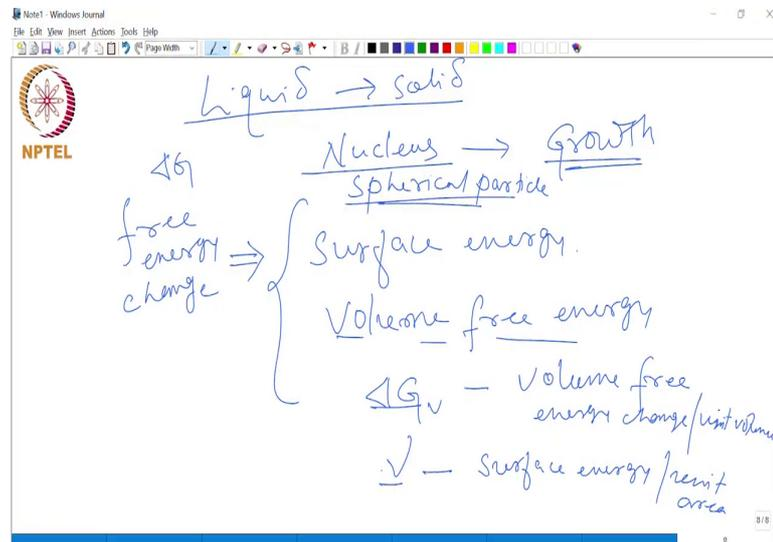 Note1 - Windows Journal
File Edit View Insert Actions Tools Help
Page Width
B I
NPTEL
Liquid → solid
Nucleus → Growth
spherical particle
ΔG
free energy change ⇒
Surface energy.
Volume free energy
ΔG_v - volume free
energy change/unit volume
γ - surface energy/unit
area
8/8
8